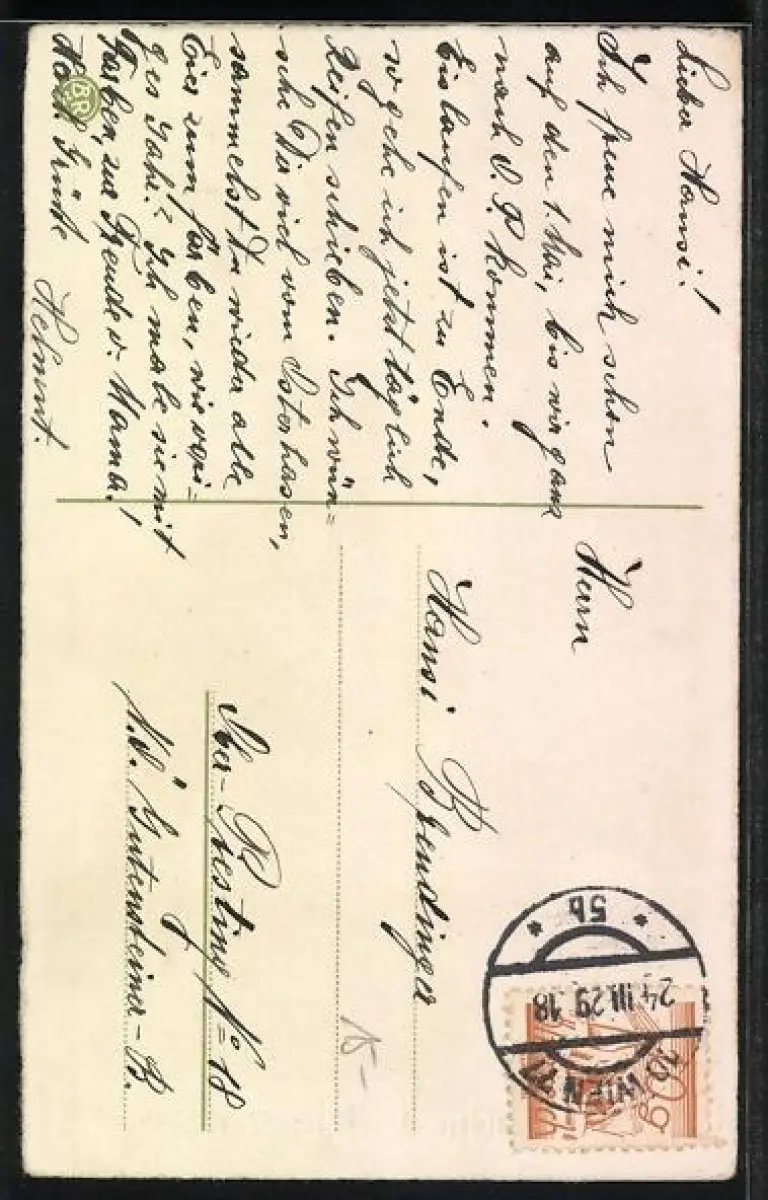 Lieber Hansi!
Ich freue mich schon
auf den 1. Mai, bis wir ganz
nach O. P. kommen.
Eislaufen ist zu Ende,
so gehe ich jetzt täglich
Reifen schieben. Ich wün=
sche Dir viel vom Osterhasen,
sammelst Du wieder alle
Eier zum färben, wie vori=
ges Jahr? Ich male sie mit
Farben, zur Freude v. Mama!
Herzl. Grüße Helmut.
BR
Herrn
Hansi
Ober-Piesting No 18
N.Ö. Gutensteiner-B.
15-
5b
24.III.29.18
WIEN 77